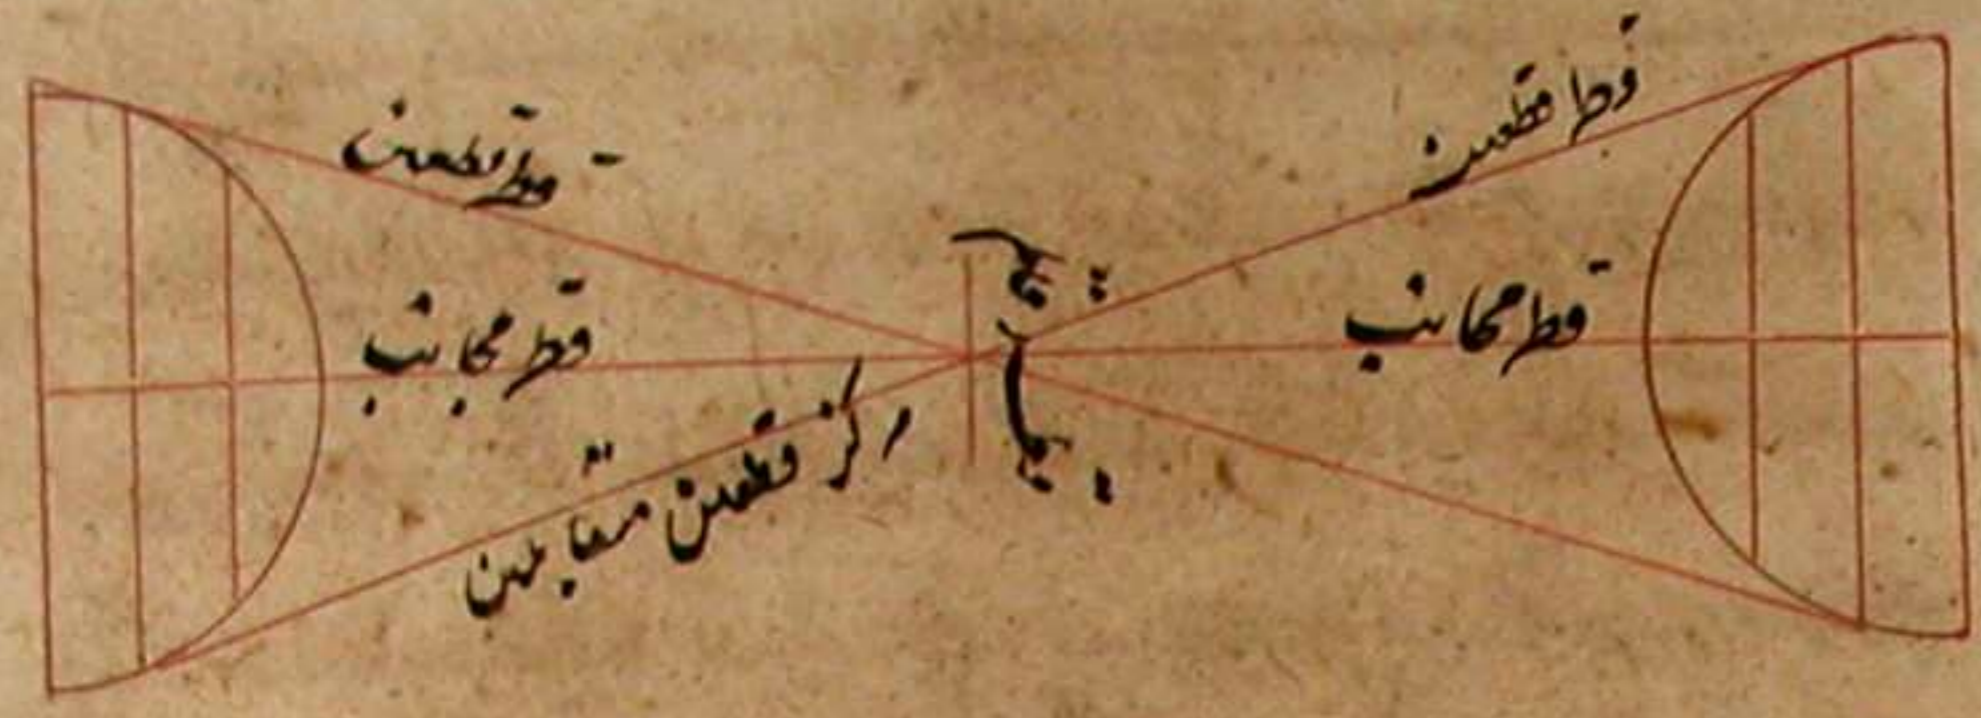 قطر قطعين
قطر قطعين
قطر مجانب
قطر مجانب
مركز قطعين متقابلين